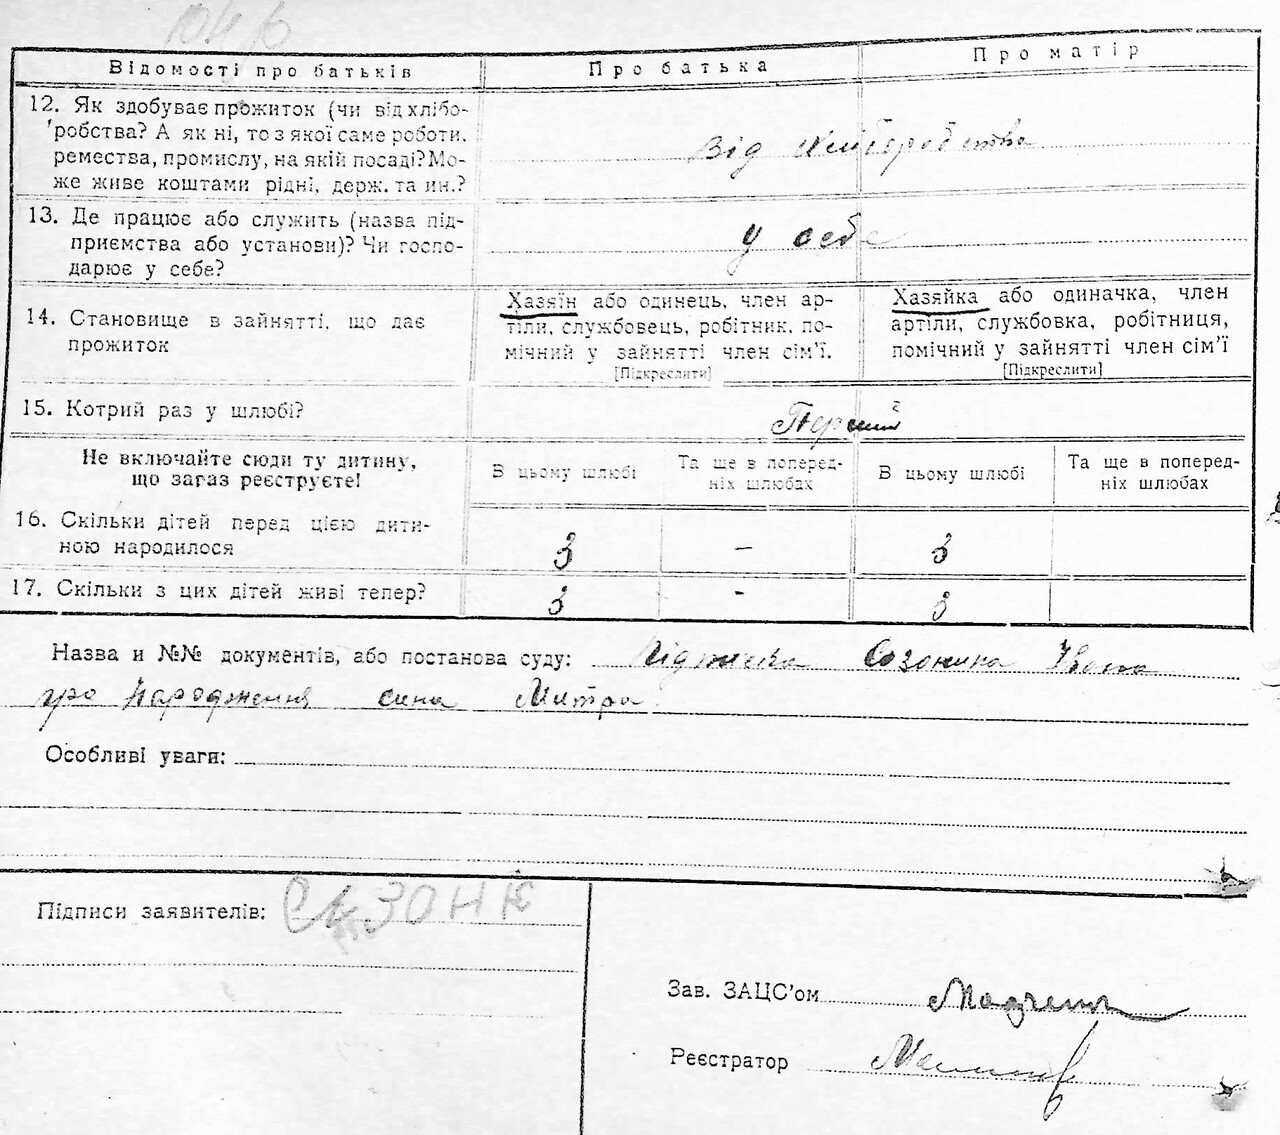 Відомості про батьків Про батька Про матір
12. Як здобуває прожиток (чи від хлібо-
робства? А як ні, то з якої саме роботи,
ремества, промислу, на якій посаді? Мо-
же живе коштами рідні, держ. та ин.?
Від хліборобства
13. Де працює або служить (назва під-
приємства або установи)? Чи госпо-
дарює у себе?
у себе
14. Становище в зайнятті, що дає
прожиток
Хазяїн або одинець, член ар-
тіли, службовець, робітник, по-
мічний у зайнятті член сім'ї.
[Підкреслити]
Хазяйка або одиначка, член
артіли, службовка, робітниця,
помічний у зайнятті член сім'ї
[Підкреслити]
15. Котрий раз у шлюбі? Перший
Не включайте сюди ту дитину,
що зараз реєструєте!
В цьому шлюбі
Та ще в поперед-
ніх шлюбах
В цьому шлюбі
Та ще в поперед-
ніх шлюбах
16. Скільки дітей перед цією дити-
ною народилося
3 – 3
17. Скільки з цих дітей живі тепер? 3 - 3
Назва и №№ документів, або постанова суду: Підписка Созоника Івана
про народження сина Митра
Особливі уваги:
Підписи заявителів:
Зав. ЗАЦС'ом
Реєстратор